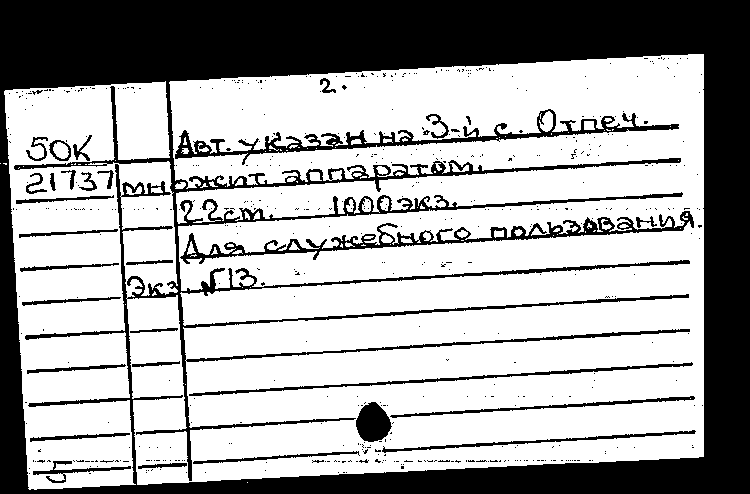 2.
50К Авт. указан на 3-й с. Отпеч.
21737 множит. аппаратом.
22см. 1000экз.
Для служебного пользования.
Экз. №13.
5